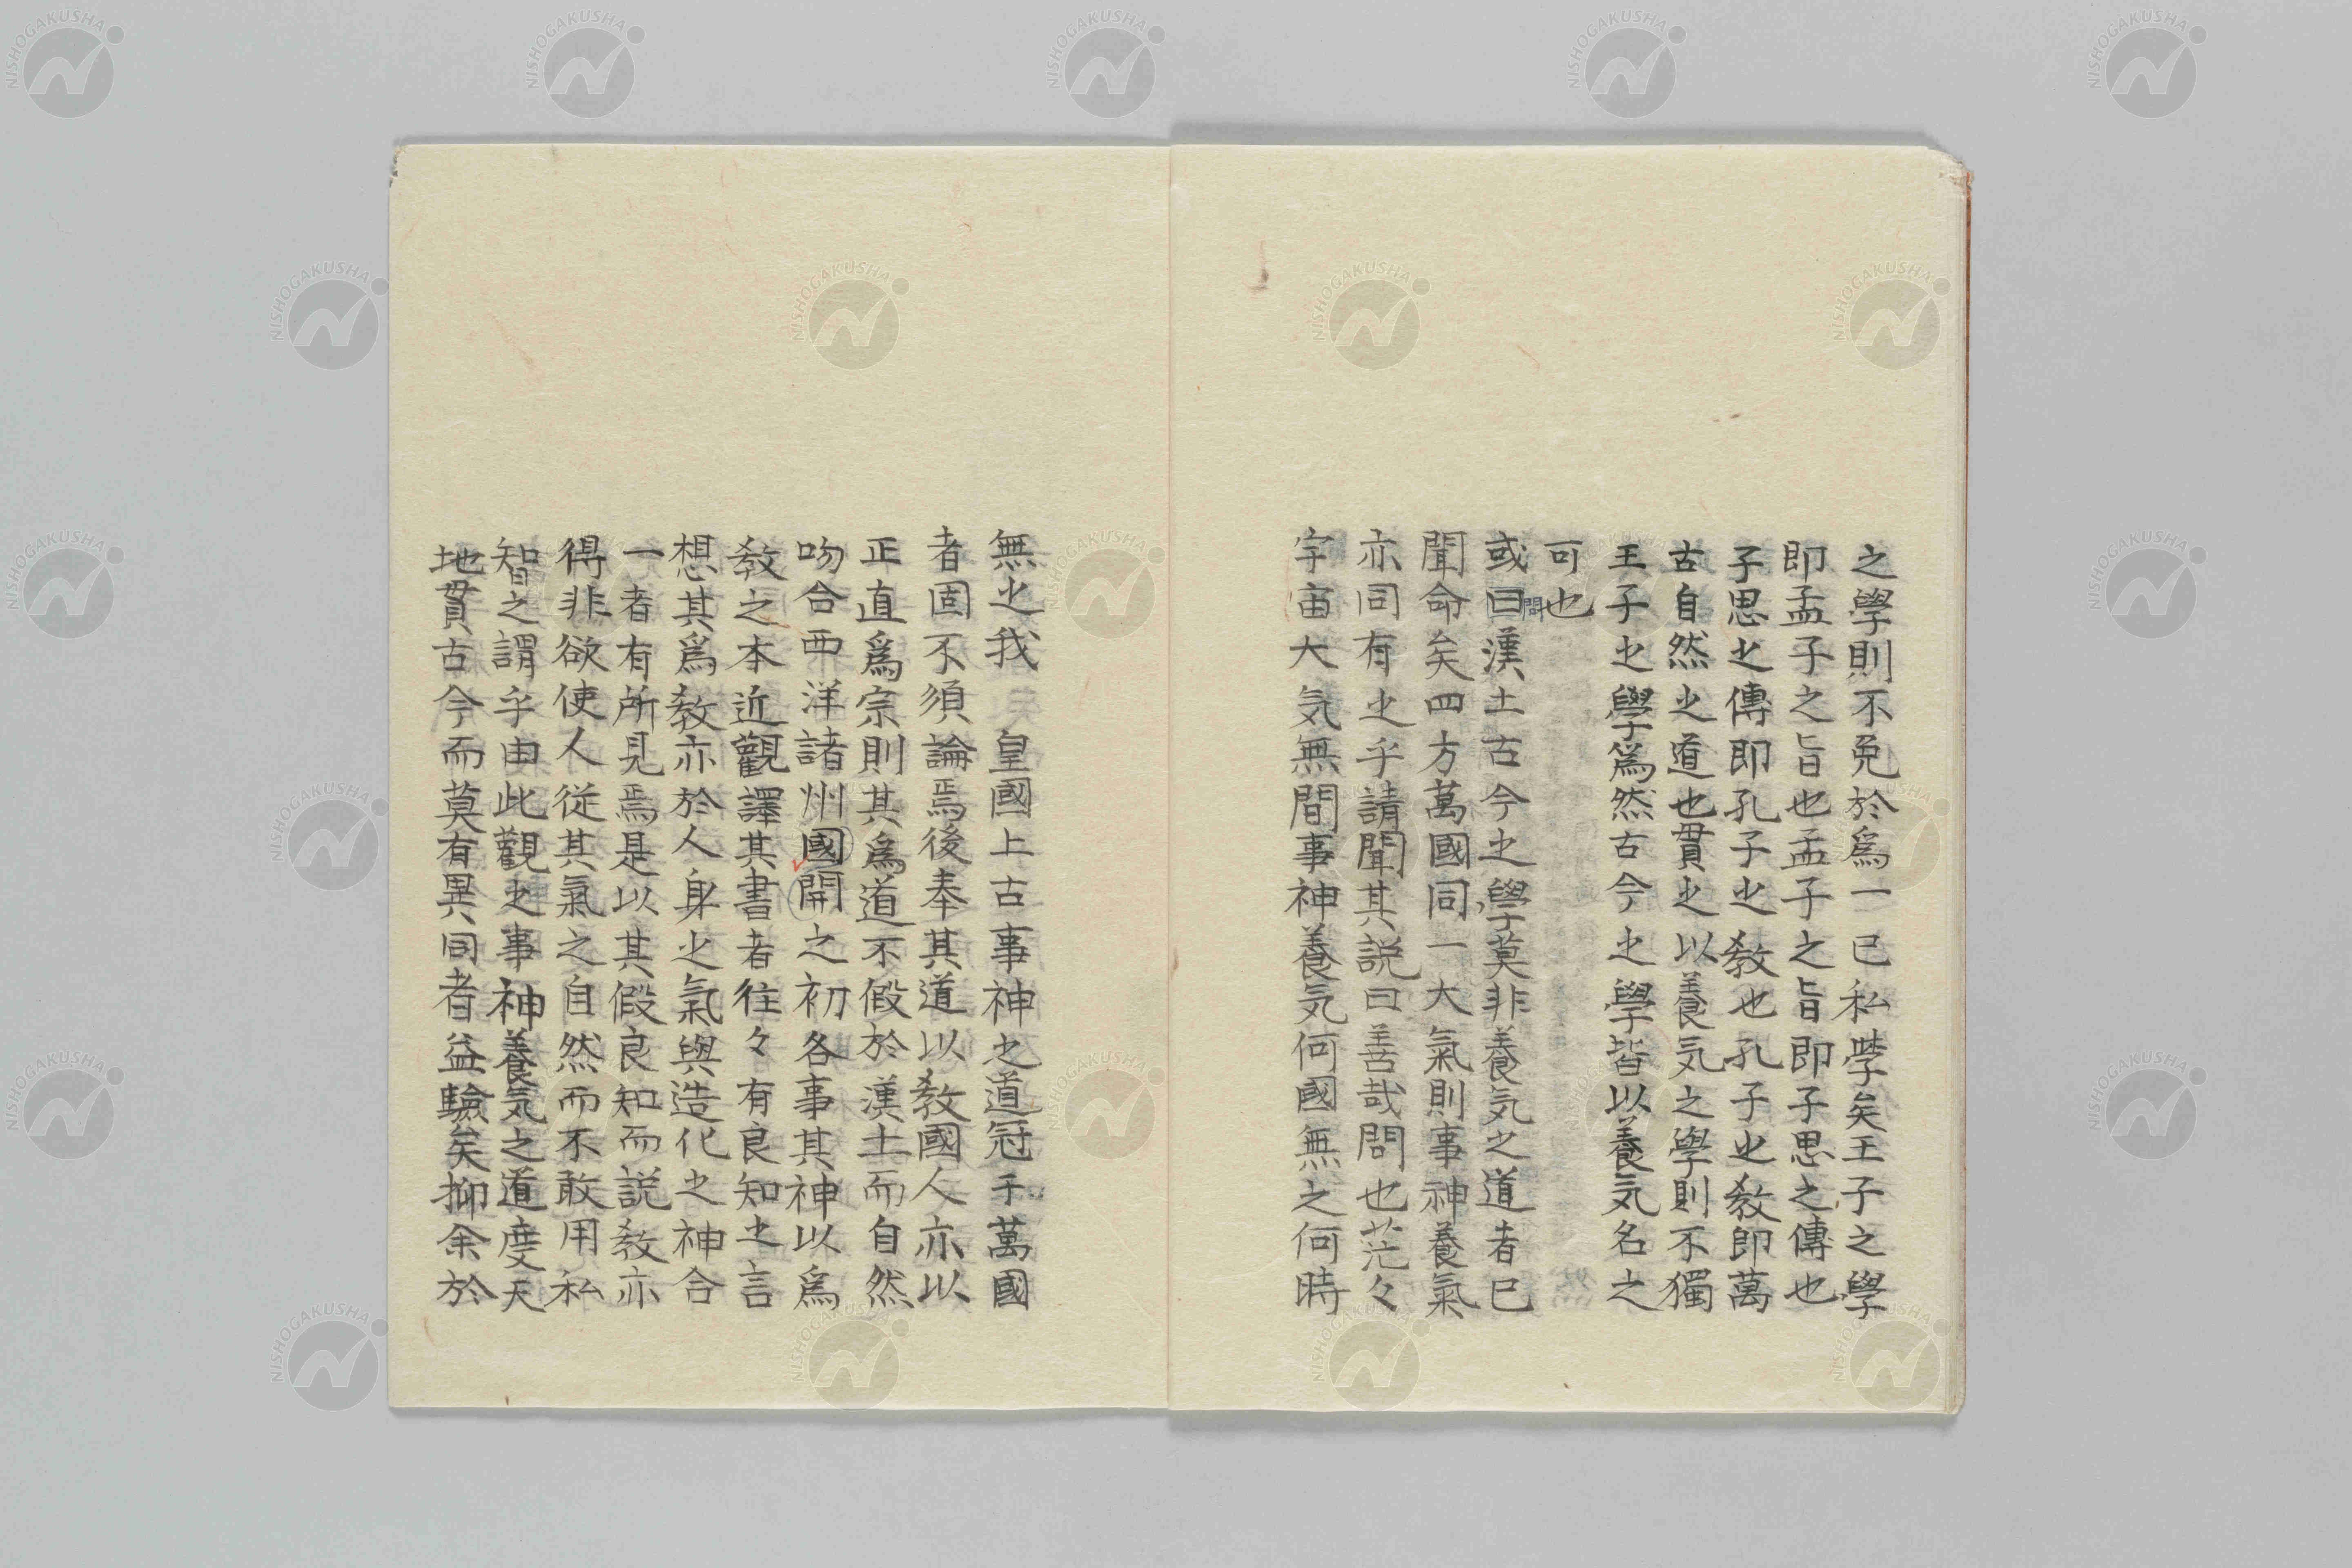 之學則不免於爲一已私學矣王子之學
即孟子之旨也孟子之旨即子思之傳也
子思之傳即孔子之敎也孔子之敎即萬
古自然之道也貫之以養気之學則不獨
王子之學爲然古今之學皆以養気名之
可也
或曰問漢土古今之學莫非養気之道者已
聞命矣四方萬國同一大氣則事神養氣
亦同有之乎請聞其説曰善哉問也茫々
宇宙大気無間事神養気何國無之何時
無之我 皇國上古事神之道冠于萬國
者固不須論焉後奉其道以敎國人亦以
正直爲宗則其爲道不假於漢土而自然
吻合西洋諸州國開之初各事其神以爲
敎之本近觀譯其書者往々有良知之言
想其爲敎亦於人身之氣與造化之神合
一者有所見焉是以其假良知而説敎亦
得非欲使人從其氣之自然而不敢用私
智之謂乎由此觀之事神養気之道度天
地貫古今而莫有異同者益驗矣抑余於
NISHOGAKUSHA